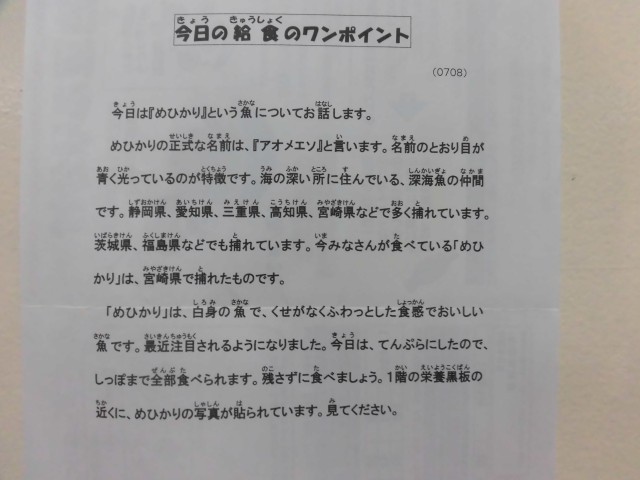 今日の給食のワンポイント
(0708)
今日は『めひかり』という魚についてお話します。
めひかりの正式な名前は、『アオメエソ』と言います。名前のとおり目が
青く光っているのが特徴です。海の深い所に住んでいる、深海魚の仲間
です。静岡県、愛知県、三重県、高知県、宮崎県などで多く捕れています。
茨城県、福島県などでも捕れています。今みなさんが食べている「めひ
かり」は、宮崎県で捕れたものです。
「めひかり」は、白身の魚で、くせがなくふわっとした食感でおいしい
魚です。最近注目されるようになりました。今日は、てんぷらにしたので、
しっぽまで全部食べられます。残さずに食べましょう。1階の栄養黒板の
近くに、めひかりの写真が貼られています。見てください。